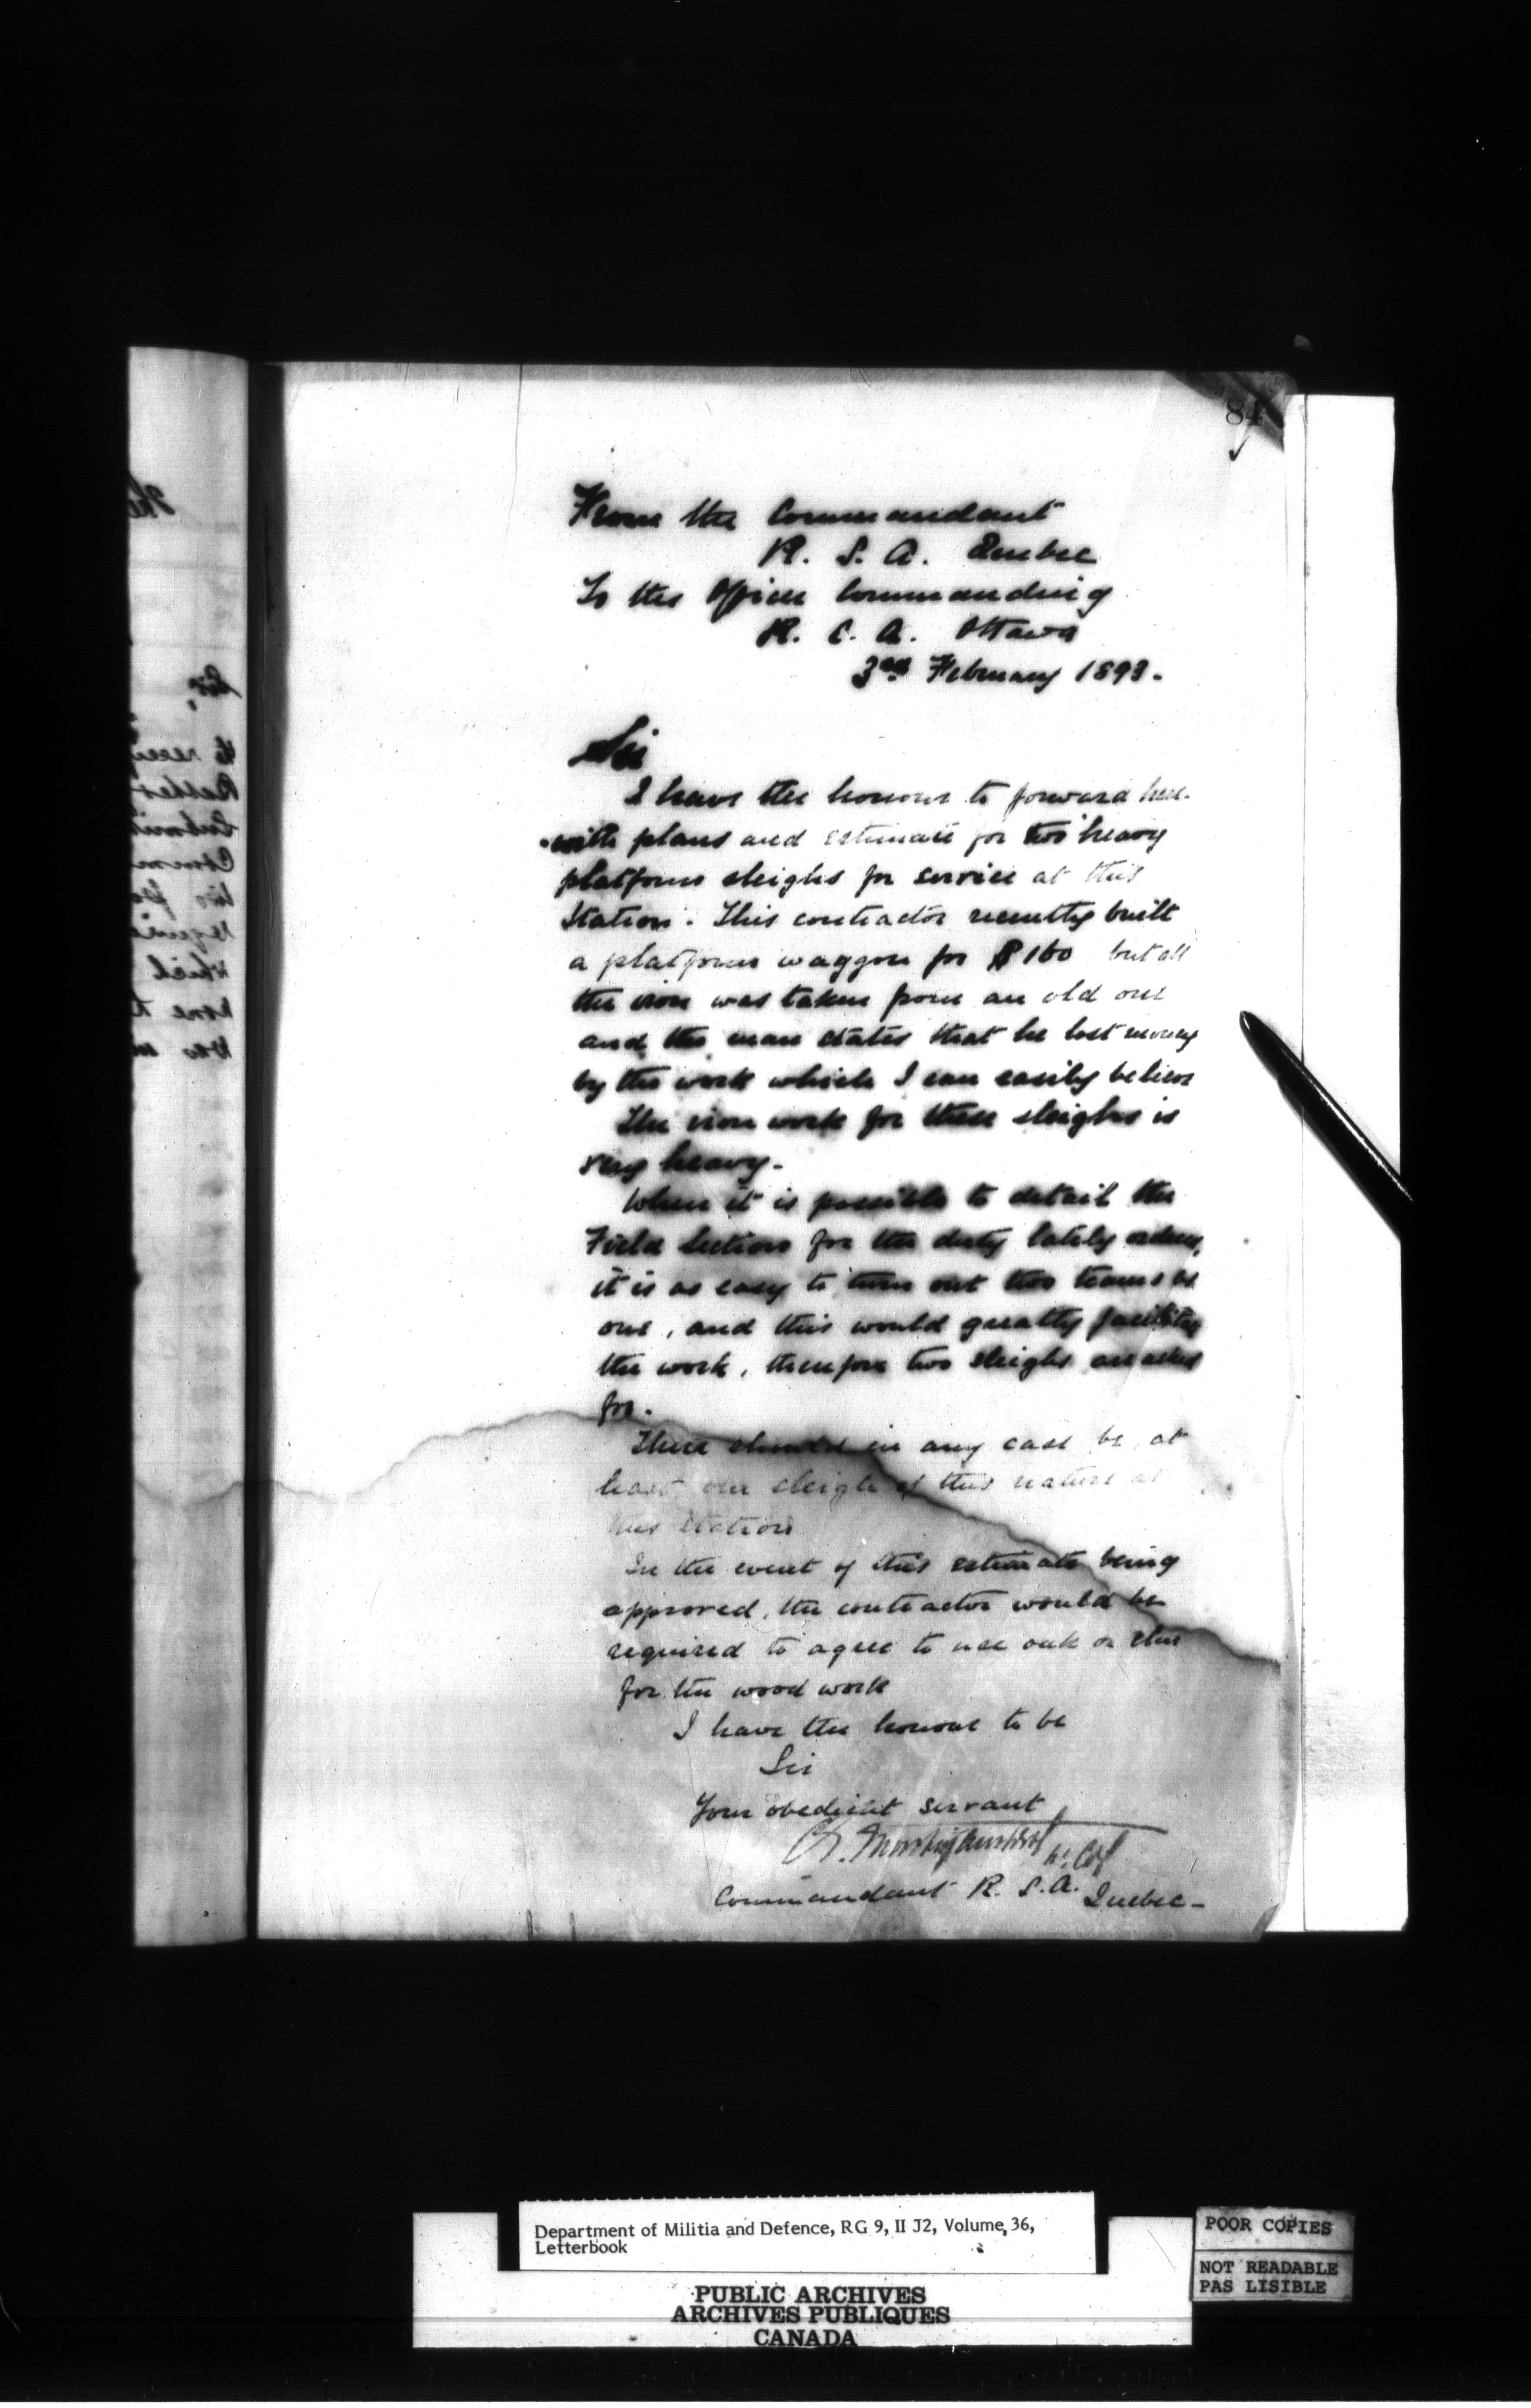 84
From the Commandant
R. S. A. Quebec
To the Officer Commanding
R. C. A. Ottawa
3rd February 1893.
Sir
I have the honour to forward here-
with plans and estimate for two heavy
platform sleighs for service at this
Station. This contractor recently built
a platform waggon for $160 but all
the iron was taken from an old one
and the man states that he lost money
by the work which I can easily believe
The iron work for these sleighs is
very heavy.
When it is possible to detail the
Field Section for the duty lately
it is as easy to turn out two teams as
one, and this would greatly
the work, therefore two sleighs are asked
for.
There should in any case be at
least one sleigh of this nature at
this Station
In the event of this estimate being
approved, the contractor would be
required to agree to use oak or elm
for the wood work
I have the honour to be
Sir
Your obedient servant
Lt. Col
Commandant R. S. A. Quebec-
Department of Militia and Defence, RG 9, II J2, Volume 36,
Letterbook
PUBLIC ARCHIVES
ARCHIVES PUBLIQUES
CANADA
POOR COPIES
NOT READABLE
PAS LISIBLE